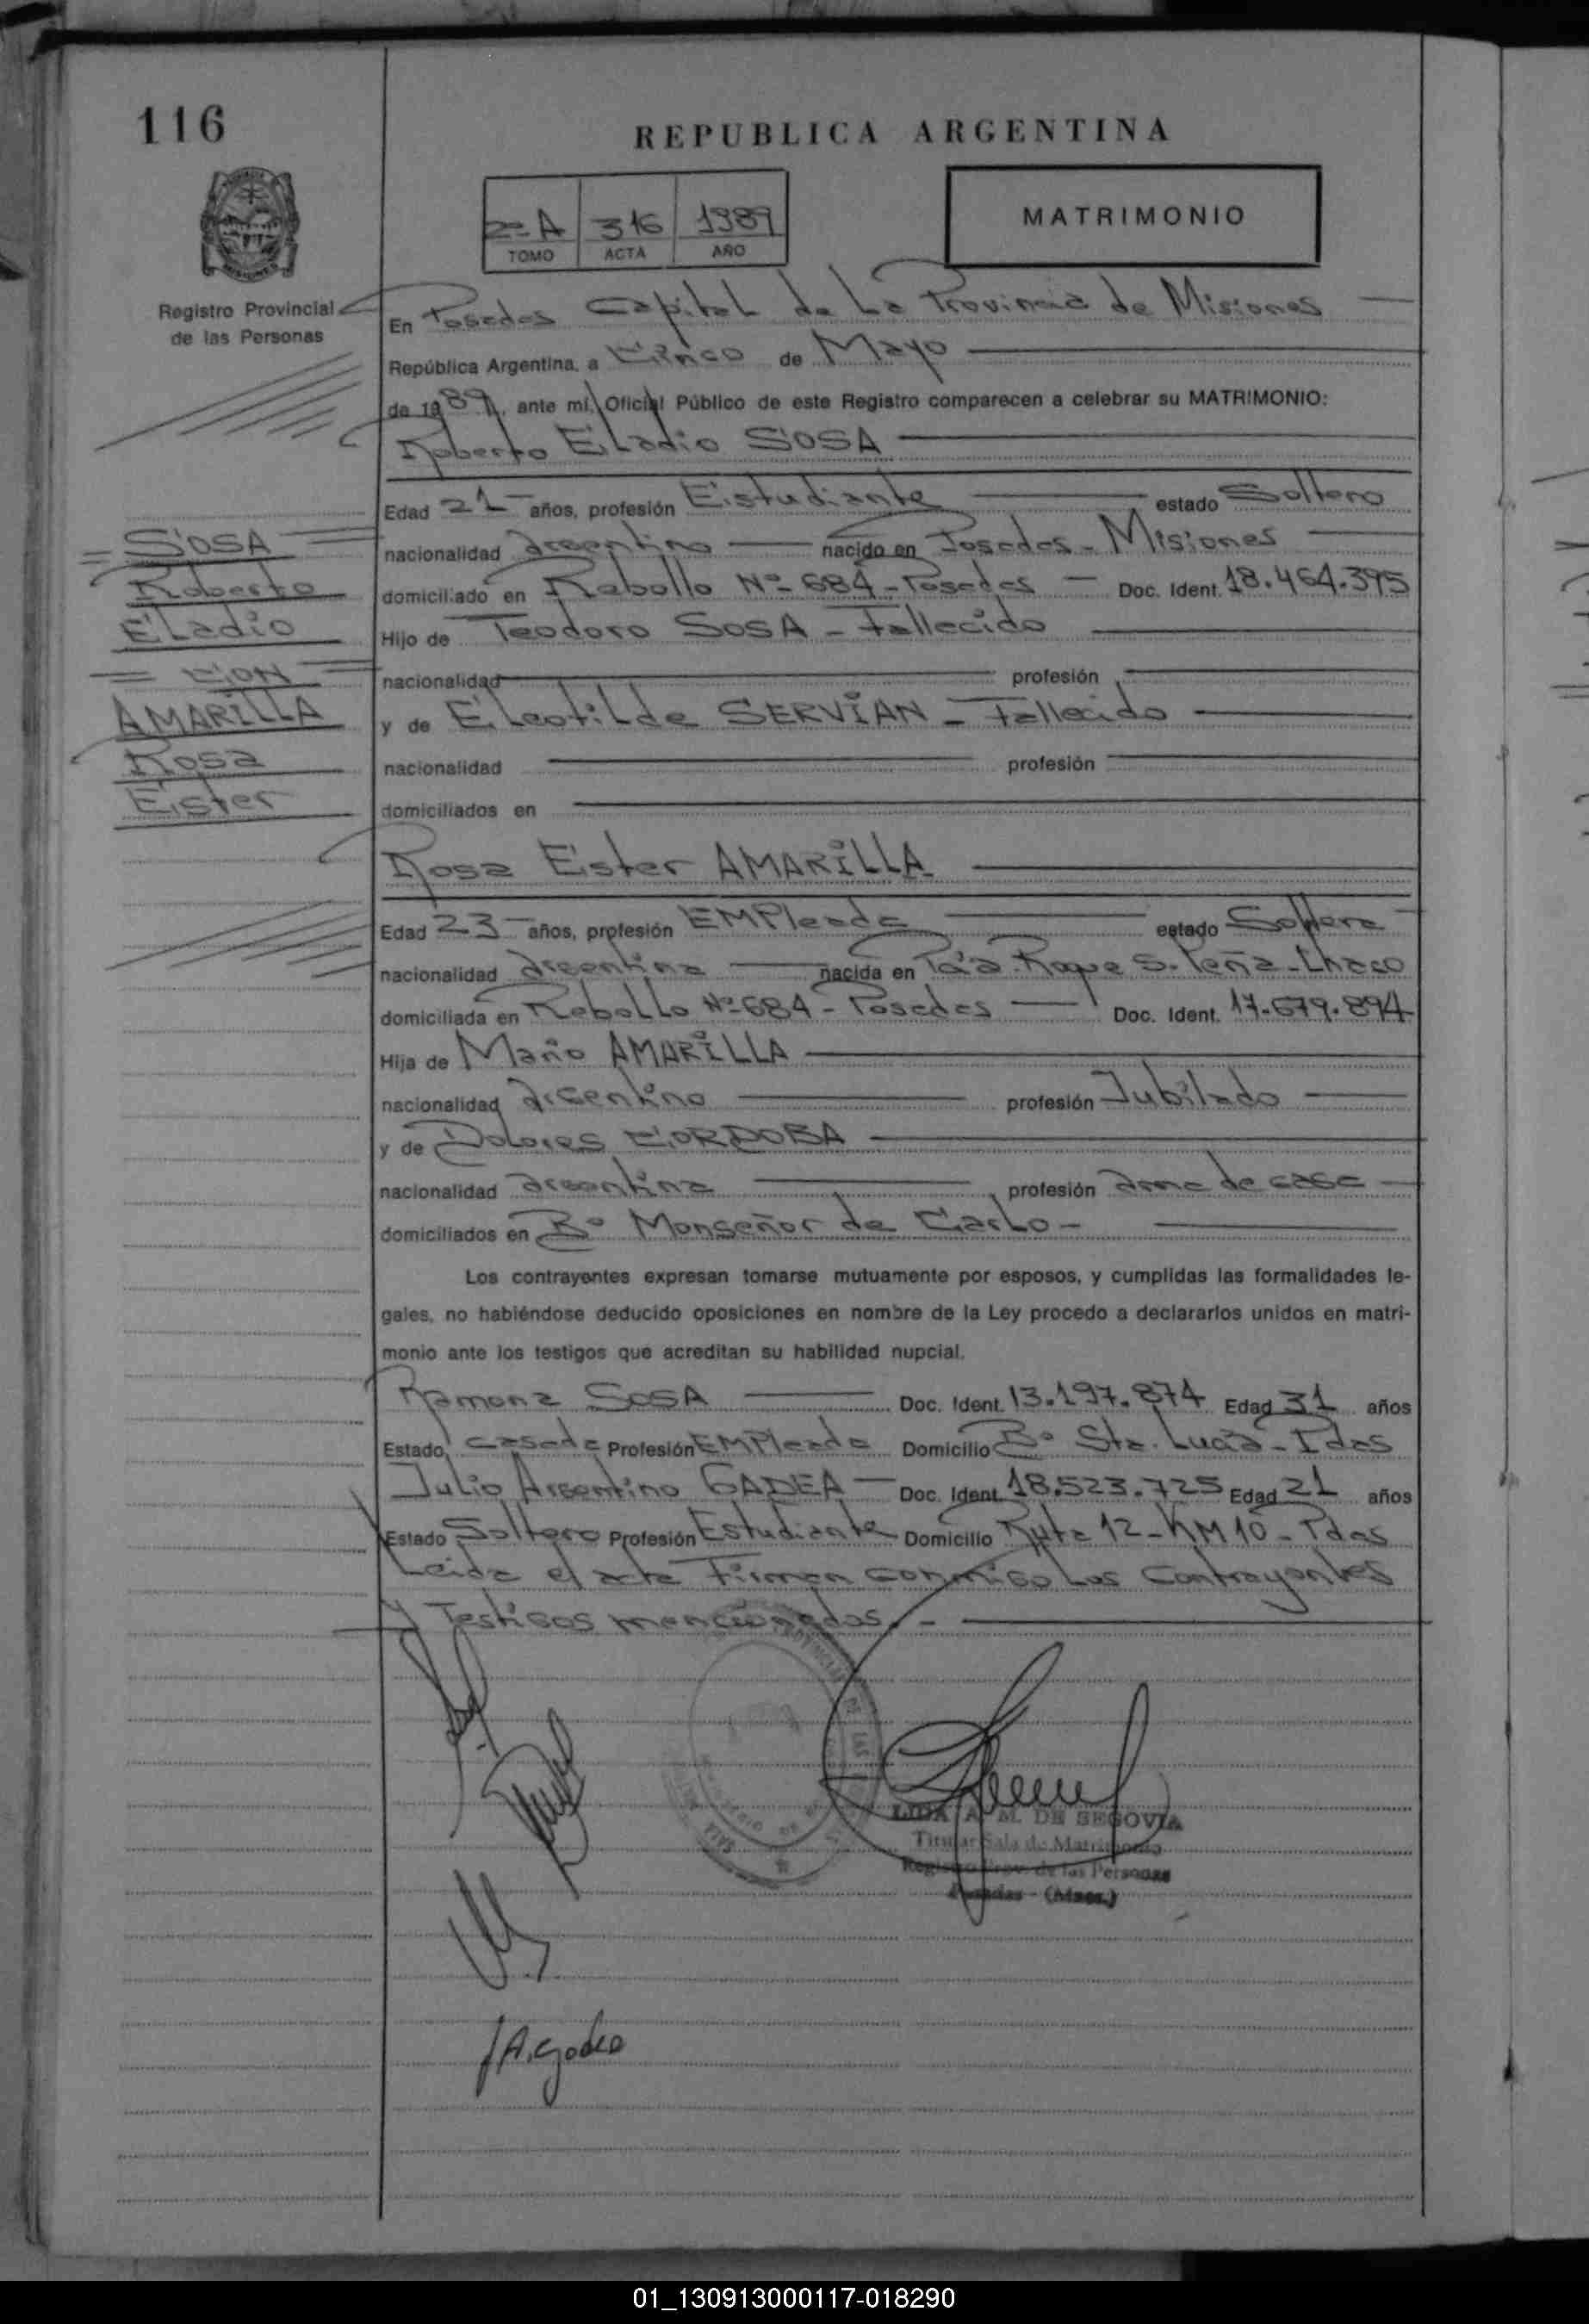 116
REPUBLICA ARGENTINA
2º A 316 1989
TOMO ACTA AÑO
MATRIMONIO
Registro Provincial
de las Personas
En Posadas Capital de La Provincia de Misiones
República Argentina, a Cinco de Mayo
de 1989, ante mí, Oficial Público de este Registro comparecen a celebrar su MATRIMONIO:
Roberto Eladio SOSA
Edad 21 años, profesión Estudiante estado Soltero
nacionalidad Argentino nacido en Posadas - Misiones
domiciliado en Rebollo Nº 684 - Posadas Doc. Ident. 18.464.395
Hijo de Teodoro SOSA - Fallecido
nacionalidad profesión
y de Cleotilde SERVIAN - Fallecido
nacionalidad profesión
domiciliados en
SOSA
Roberto
Eladio
CON
AMARILLA
Rosa
Ester
Rosa Ester AMARILLA
Edad 23 años, profesión EMPleada estado Soltera
nacionalidad Argentina nacida en Pcia. Roque S. Peña - Chaco
domiciliada en Rebollo Nº 684 - Posadas Doc. Ident. 17.679.894
Hija de Mario AMARILLA
nacionalidad Argentino profesión Jubilado
y de Dolores CORDOBA
nacionalidad Argentina profesión ama de casa
domiciliados en Bº Monseñor de Carlo -
Los contrayentes expresan tomarse mutuamente por esposos, y cumplidas las formalidades le-
gales, no habiéndose deducido oposiciones en nombre de la Ley procedo a declararlos unidos en matri-
monio ante los testigos que acreditan su habilidad nupcial.
Ramona SOSA Doc. Ident. 13.197.874 Edad 31 años
Estado casada Profesión EMPleada Domicilio Bº Sta. Lucía - Pdas
Julio Argentino GADEA Doc. Ident. 18.523.725 Edad 21 años
Estado Soltero Profesión Estudiante Domicilio Ruta 12 - KM 10 - Pdas
Leida el acta Firman conmigo Los Contrayentes
y Testigos mencionados. -
LIDA A. M. DE SEGOVIA
Titular Sala de Matrimonio
Registro Prov. de las Personas
Posadas - (Mnes.)
J A. Gadea
01_130913000117-018290